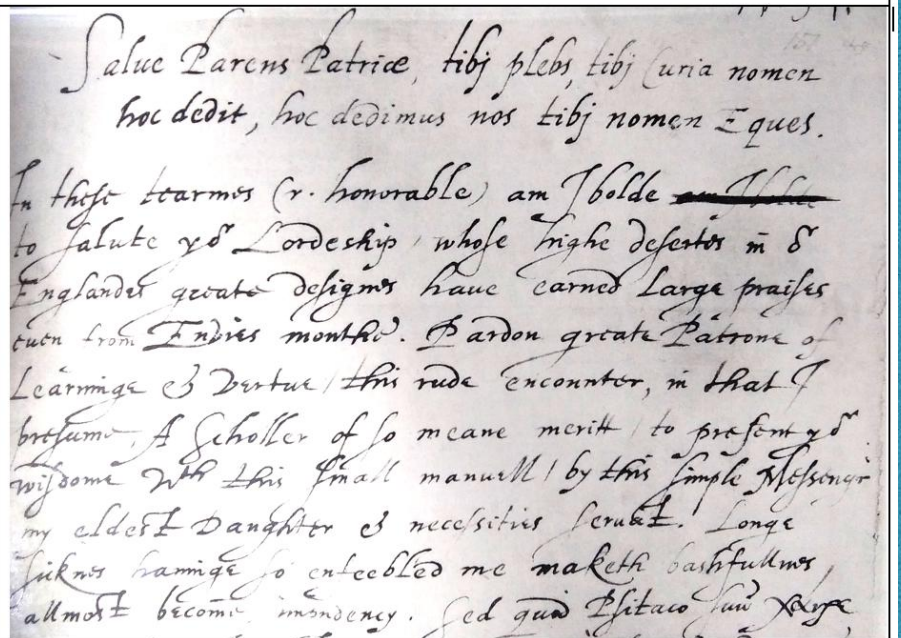 Salue Parens Patriæ, tibj plebs, tibj Curia nomen
hoc dedit, hoc dedimus nos tibj nomen Eques.
In these tearmes (r. honorable) am I bolde
to salute yor Lordeship / whose highe desertes in or
Englandes greate designes have earned large praises
euen from Envies mouthe. Pardon greate Patrone of
Learninge & Vertue / this rude encounter, in that I
presume, A Scholler of so meane meritt / to present yor
wisdome wth this small manuell / by this simple Messenger
my eldest Daughter & necessities servat. Longe
sicknes havinge so enfeebled me maketh bashfullnes
allmost become impudency. Sed quis Psitaco suū χαῖρε